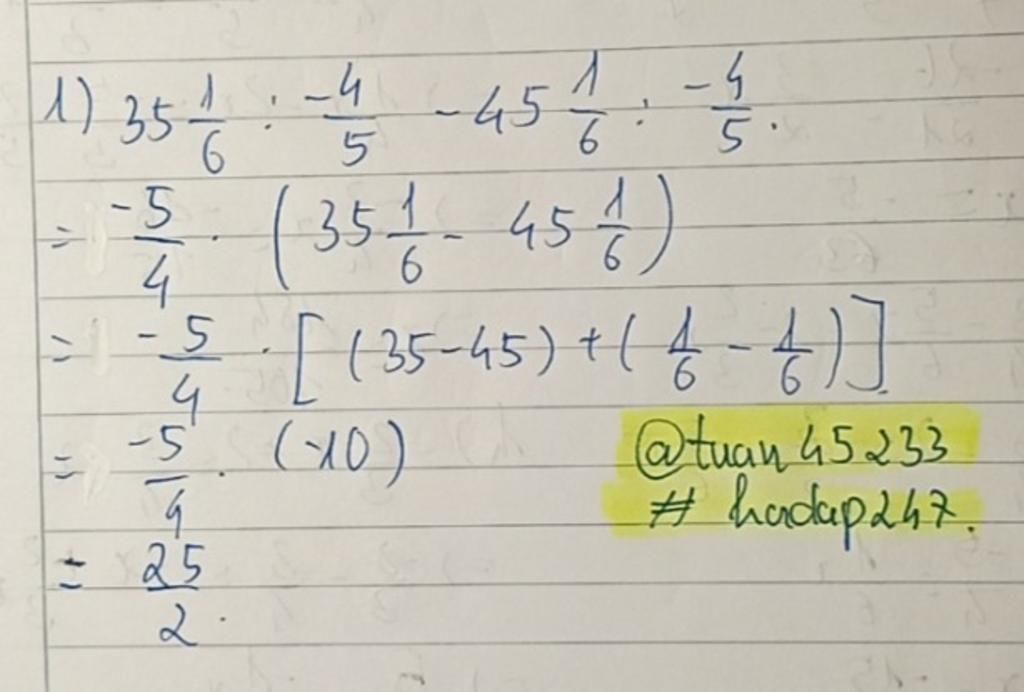 1) 35 1/6 : -4/5 - 45 1/6 : -4/5.
= -5/4 . (35 1/6 - 45 1/6)
= -5/4 . [(35-45)+(1/6 - 1/6)]
= -5/4 . (-10)
@tuan45233
# hodap247.
= 25/2.